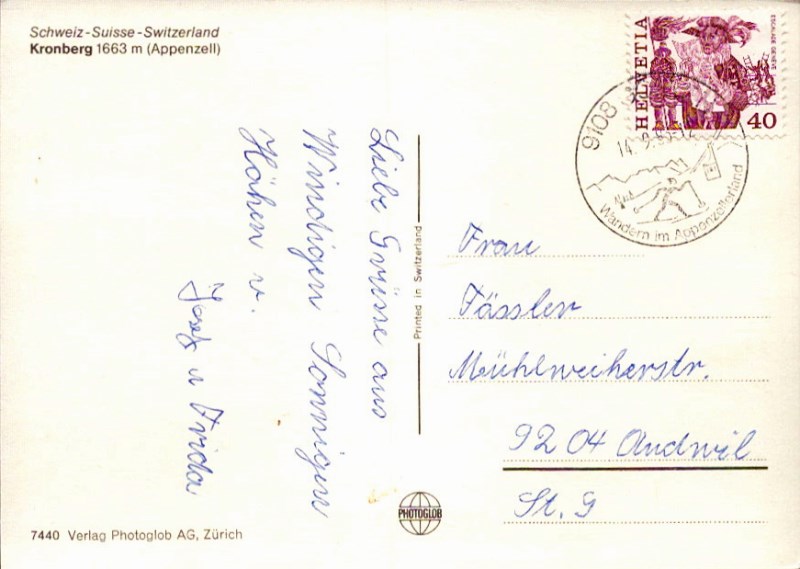 Schweiz-Suisse-Switzerland
Kronberg 1663 m (Appenzell)
Liebe Grüsse aus
Windigen Sonnigen
Höhen v.
Josef u Frida
Printed in Switzerland
HELVETIA
ESCALADE GENÈVE
40
9108
14.9.
Wandern im Appenzellerland
Frau
Fässler
Mühlweiherstr.
9204 Andwil
St. G
PHOTOGLOB
7440 Verlag Photoglob AG, Zürich